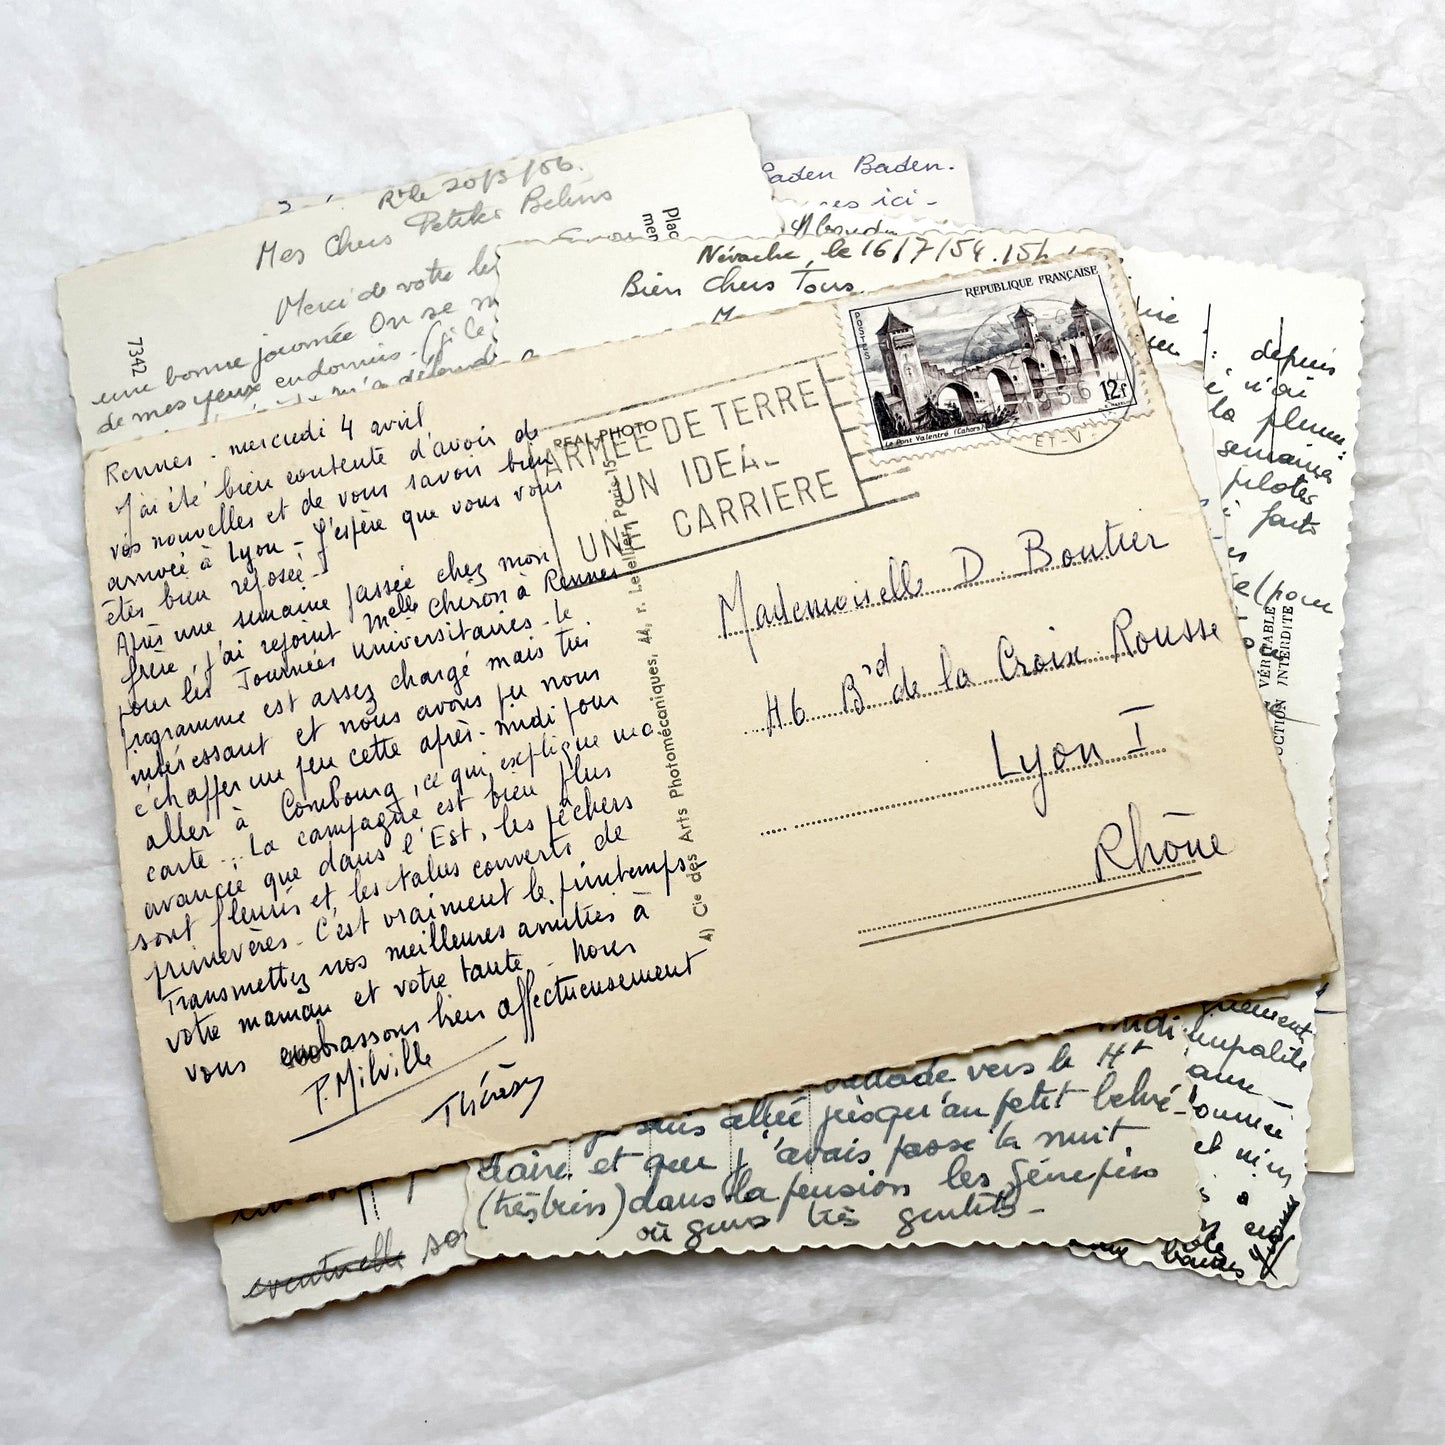 Rennes - mercredi 4 avril
J'ai été bien contente d'avoir de
vos nouvelles et de vous savoir bien
arrivée à Lyon - J'espère que vous vous
êtes bien reposée -
Après une semaine passée chez mon
frère, j'ai rejoint Melle Chiron à Rennes
pour les Journées Universitaires - le
programme est assez chargé mais très
intéressant et nous avons pu nous
échapper un peu cette après-midi pour
aller à Combourg, ce qui explique ma
carte... La campagne est bien plus
avancée que dans l'Est, les pêchers
sont fleuris et les talus couverts de
primevères - C'est vraiment le printemps -
Transmettez nos meilleures amitiés à
votre maman et votre tante - nous
vous embrassons bien affectueusement
P. Milville
Thérèse
REAL PHOTO
ARMÉE DE TERRE
UN IDEAL
UNE CARRIERE
REPUBLIQUE FRANÇAISE
POSTES
12f
Le Pont Valentré (Cahors)
1956
ET-V
4) Cie des Arts Photomécaniques, 44, r. Letellier, Paris-15
Mademoiselle D. Boutier
46 Brd de la Croix Rousse
Lyon I
Rhône
le 20/3/56.
Mes Chers Petits
Merci de votre
une bonne journée On se
de mes yeux endormis - (je le
7342
Baden Baden.
ici -
Plac
Névache, le 16/7/54. 15h
Bien Chers Tous.
depuis
n'ai
la pluie
semaine
piloter
(pour
VÉRITABLE
UCTION INTERDITE
vers le
suis allée jusqu'au petit belvé-
daire et que j'avais passé la nuit
(très bien) dans la pension les Génépis
où gens très gentils -
eventuelle